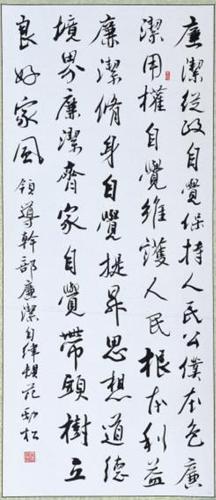 廉潔從政自覺保持人民公僕本色廉
潔用權自覺維護人民根本利益
廉潔脩身自覺提昇思想道德
境界廉潔齊家自覺帶頭樹立
良好家風 領導幹部廉潔自律規范 劲松